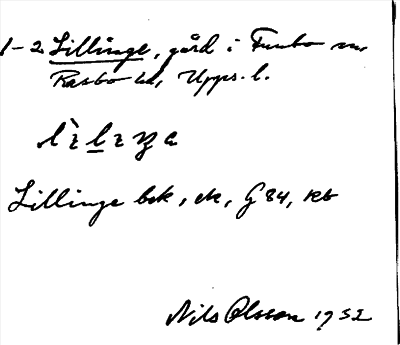 1-2 Lillinge, gård i Funbo sn,
Rasbo hd, Upps. l.
Lillinge bsk, ek, G 84, kb
Nils Olsson 1932